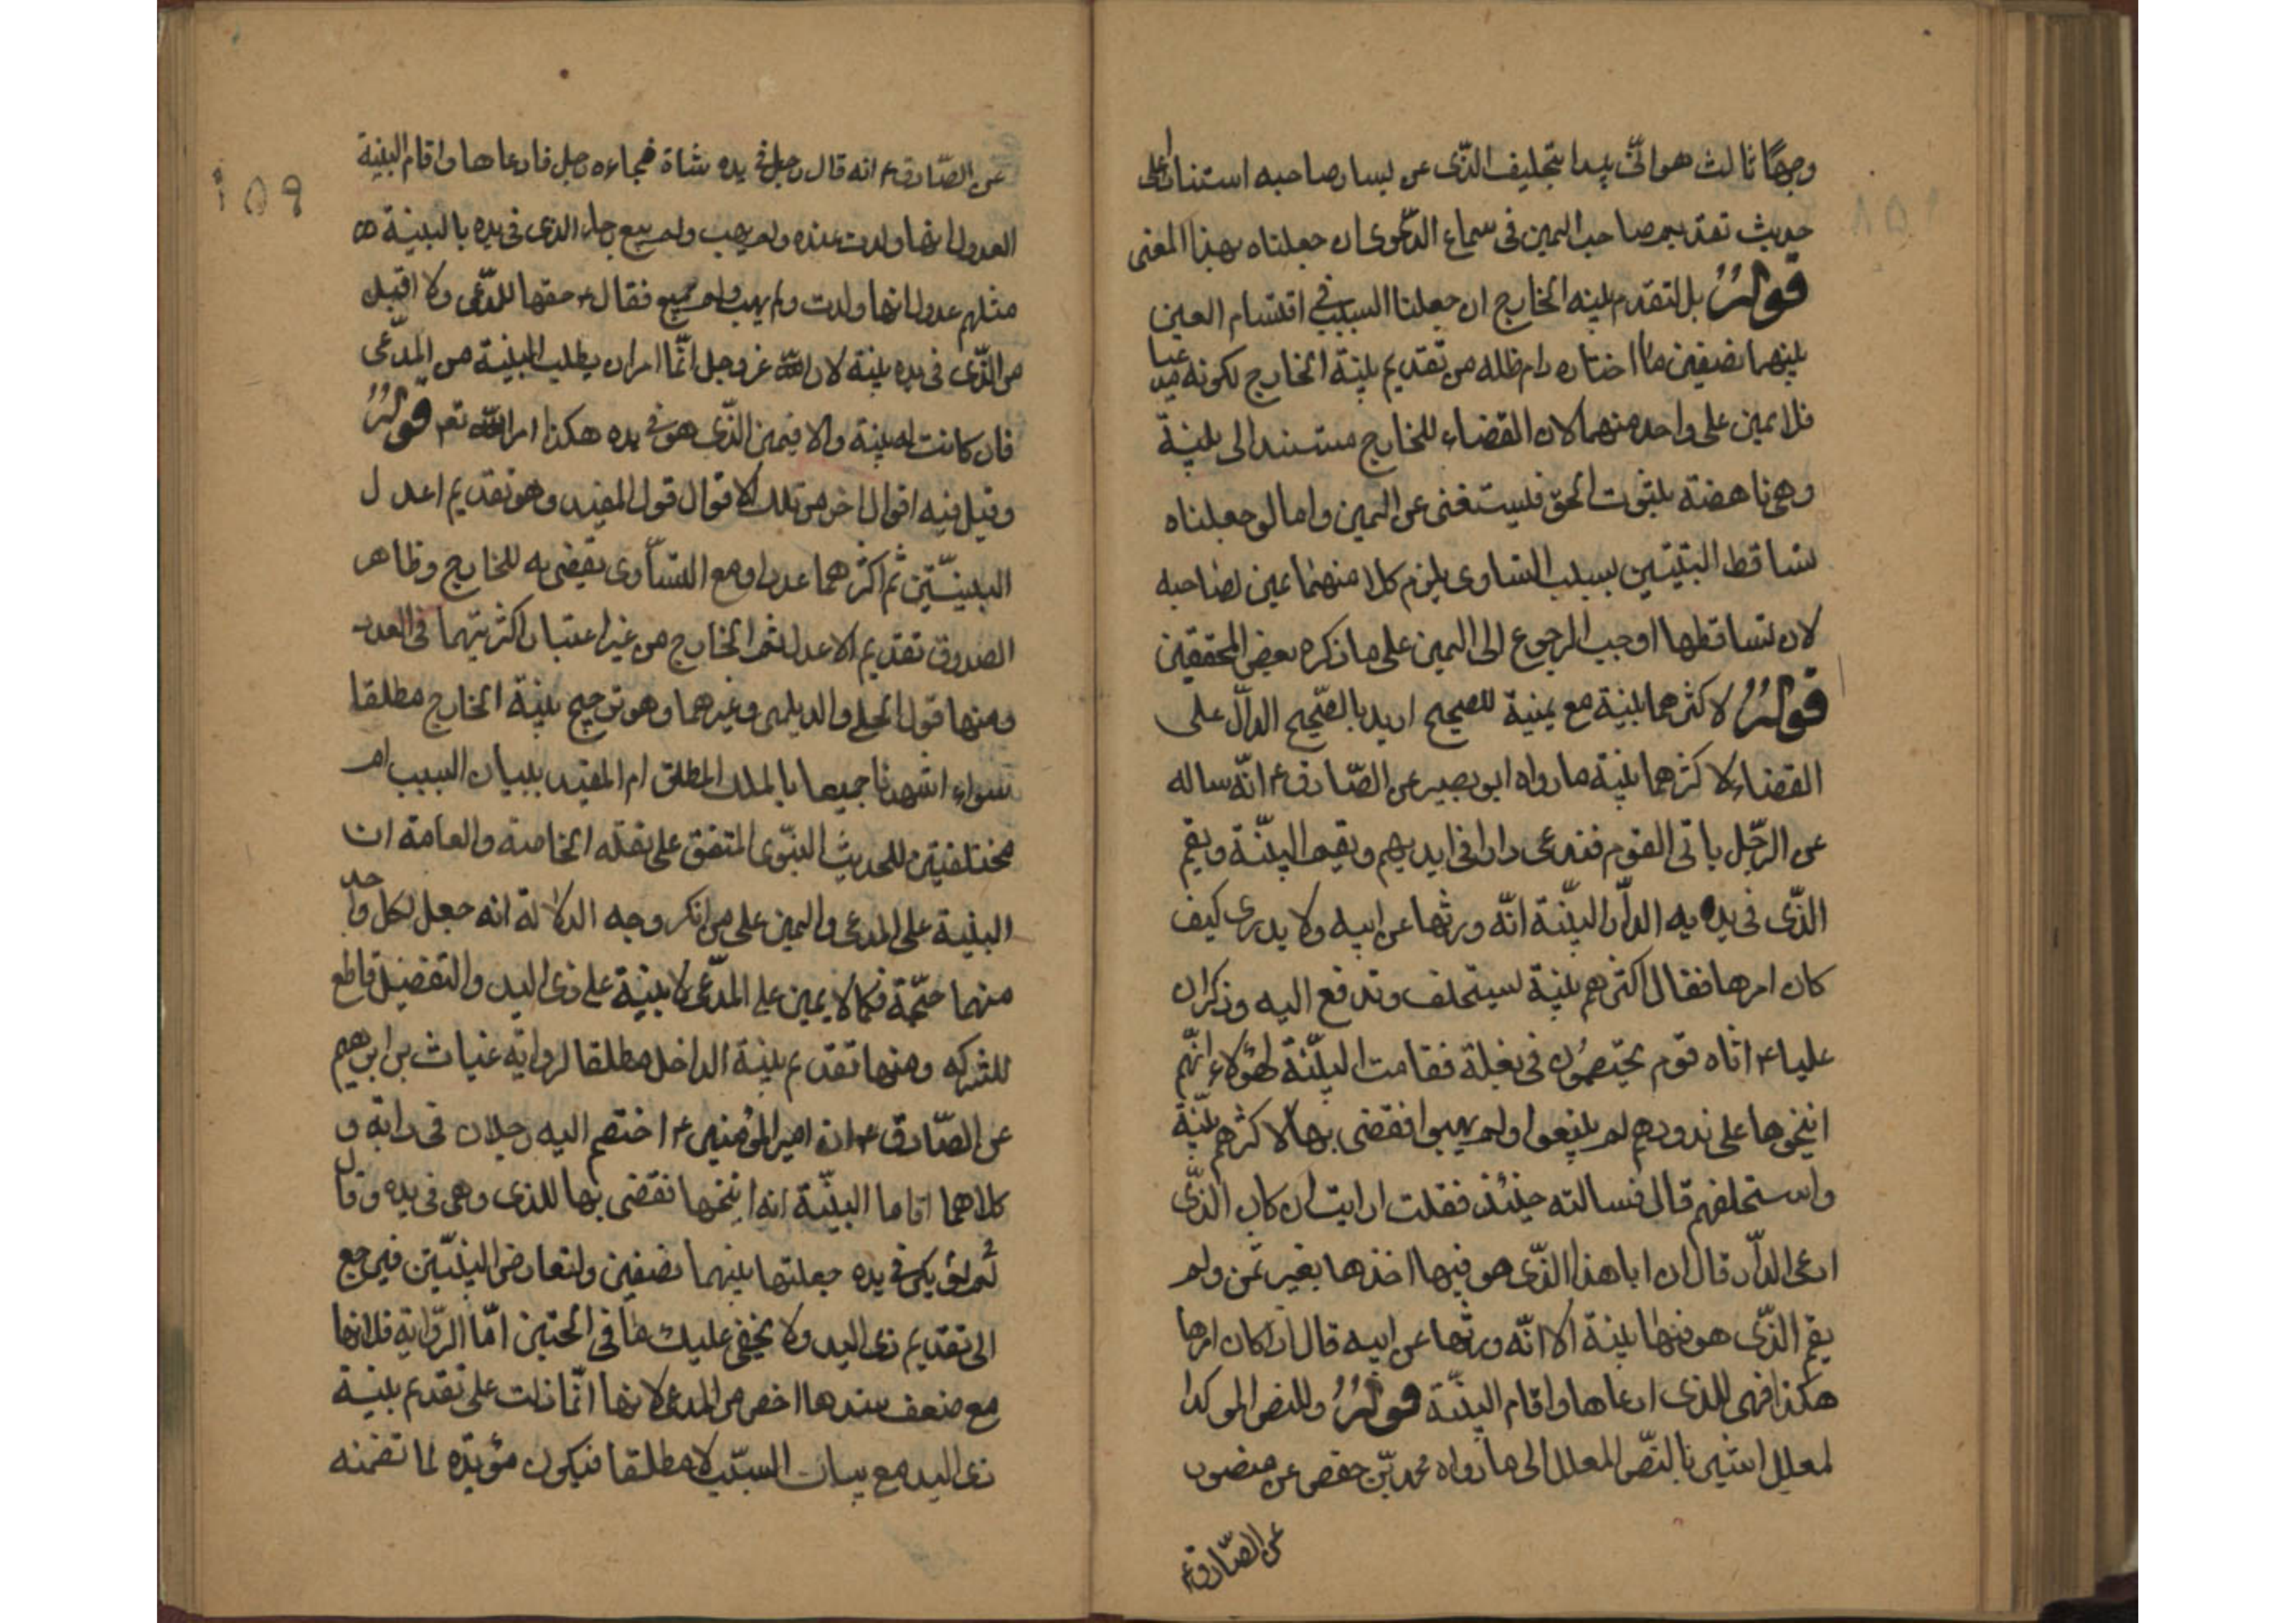 وجهًا ثالث هو انّه يبدا بتحليف الذّى عن يسار صاحبه استنادا على
حديث تقديم صاحب اليمين فى سماع الدّعوى ان جعلناه بهذا المعنى
قولُهُ بل لتقدم بينه الخارج ان جعلنا السبب فى اقتسام العين
بينهما نصفين ما اختاره دام ظله من تقديم بينة الخارج لكونه
فلا يمين على واحد منهما لان القضاء للخارج مستند الى بينة
وهى ناهضة بثبوت الحقّ فيستغنى عن اليمين واما لو جعلناه
تساقط البينتين بسبب التساوى يلزم كلا منهما يمين لصاحبه
لان تساقطها اوجب الرجوع الى اليمين على ما ذكره بعض المحققين
قولُهُ لاكثرهما بينة مع يمينة للصحيح اريد بالصّحيح الدالّ على
القضاء لاكثرهما بينة ما رواه ابو بصير عن الصّادق ع انّه ساله
عن الرّجل ياتى القوم فيدعى دارا فى ايديهم ويقيم البيّنة ويقيم
الذّى فى يديه الدار البيّنة انّه ورثها عن ابيه ولا يدرى كيف
كان امرها فقال اكثرهم بينة يستحلف وتدفع اليه وذكر ان
عليا ع اتاه قوم يختصمون فى بغلة فقامت البيّنة لهؤلاء انّهم
انتجوها على مذودهم لم يبيعوا ولم يهبوا فقضى بها لاكثرهم بيّنة
واستحلفهم قال فسالته حينئذ فقلت ارايت ان كان الذّى
ادعى الدّار قال ان ابا هذا الذّى هو فيها اخذها بغير ثمن ولم
يقم الذّى هو فيها بينة الا انّه ورثها عن ابيه قال اذا كان امرها
هكذا فهى للذى ادعاها واقام البيّنة قولُهُ وللنص الموكد
لمعلل اشير نا بالنصّ المعلل الى ما رواه محمد بن حفص عن منصور
عن الصّادق ع
١٥٩
عن الصّادق ع انه قال رجل فى يده شاة فجاءه رجل فادعاها واقام البينة
العدول انها ولدت عنده ولم يهب ولم يبع وجاء الذى فى يده بالبينة
مثلهم عدول انها ولدت ولم يهب ولم يبيع فقال ع حقها للمدّعى ولا اقبل
من الذّى فى يده بينة لان الله عز وجل انّما امر ان يطلب البينة من المدّعى
فان كانت له بينة والا فيمين الذّى هو فى يده هكذا امر الله تعم قولُهُ
وقيل فيه اقوال اخر من تلك الاقوال قول المفيد وهو تقديم اعدل
البينيّتين ثم اكثرهما عددا ومع التساوى يقضى به للخارج وظاهر
الصدوق تقديم الاعدل ثم الخارج من غير اعتبار اكثريتهما فى العدد
ومنها قول الحلى والديلمى وغيرهما وهو ترجيح بينة الخارج مطلقا
سواء اشهدنا جميعا بالملك المطلق ام المقيد ببيان السبب ام
مختلفتين للحديث النبّوى المتفق على نقله الخاصة والعامة ان
البينة على المدعى واليمين على من انكر وجه الدلالة انه جعل لكل واحد
منهما حجّة فكما لا يمين على المدّعى لا بينة على ذى اليد والتفضيل قاطع
للشركه ومنها تقديم بينة الداخل مطلقا لرواية غياث بن ابرهيم
عن الصّادق ع ان امير المؤمنين ع اختصم اليه رجلان فى دابة و
كلاهما اقاما البيّنة انه انتجها فقضى بها للذى وهى فى يده وقال
لو لم يكن فى يده جعلتها بينهما نصفين ولتعارض البيّنتين فيرجع
الى تقديم ذى اليد ولا يخفى عليك ما فى الحجتين امّا الرّواية فلانها
مع ضعف سندها اخص من المدعى لانها انّما دلت على تقديم بينة
ذى اليد مع بيان السبّب لا مطلقا فيكون مؤيّده لما تضمنه